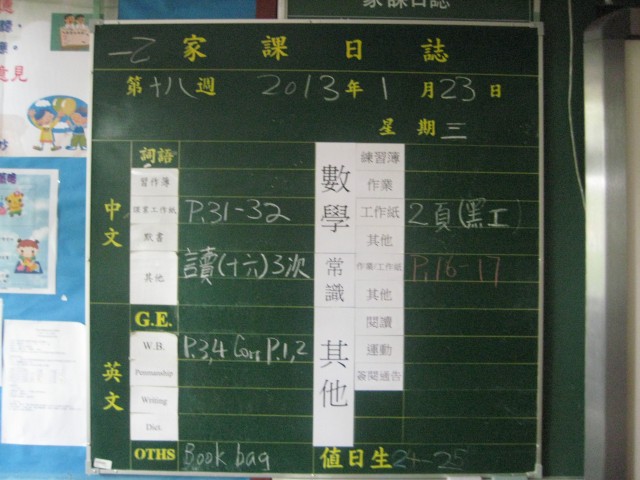 家課日誌
意見
一乙 家課日誌
第十八週 2013年1月23日
星期三
中文
詞語
習作簿
課業工作紙 P.31-32
默書
其他 讀(十六)3次
英文
G.E.
W.B. P.3,4 Corr P.1,2
Penmanship
Writing
Dict.
OTHS Book bag
數學
練習簿
作業
工作紙 2頁(黑工)
其他
常識
作業/工作紙 P.16-17
其他
其他
閱讀
運動
簽閱通告
值日生 24-25